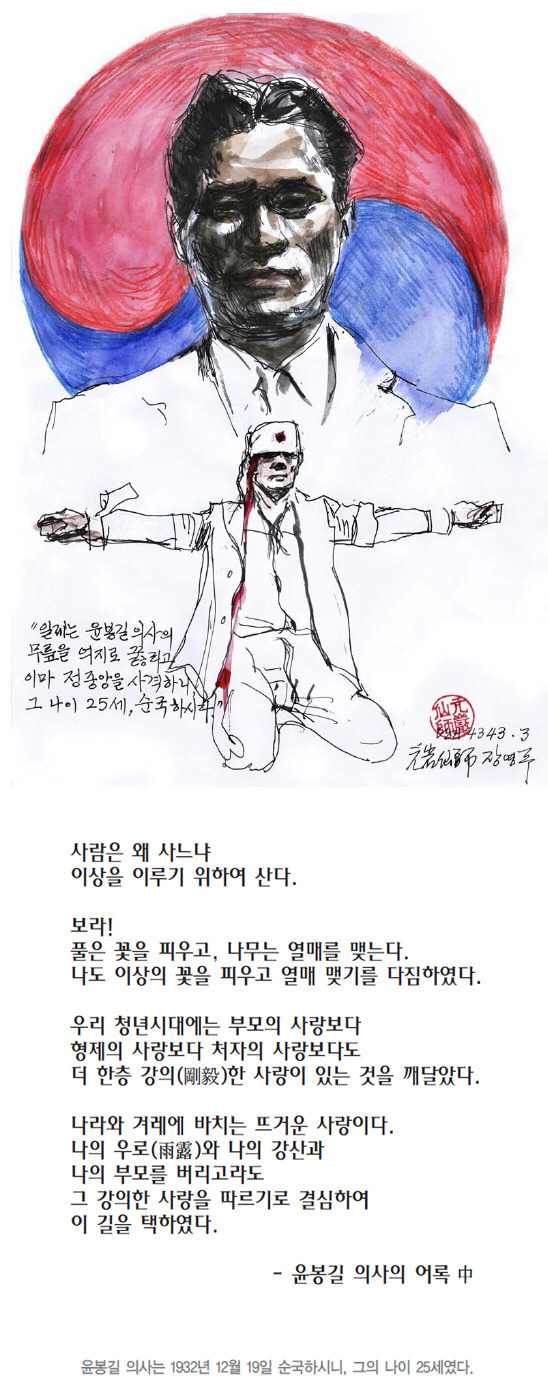 "일제는 윤봉길 의사의
무릎을 억지로 꿇리고
이마 정 중앙을 사격하니
그 나이 25세, 순국하시다."
4343. 3
元岩仙師 장영주
사람은 왜 사느냐
이상을 이루기 위하여 산다.
보라!
풀은 꽃을 피우고, 나무는 열매를 맺는다.
나도 이상의 꽃을 피우고 열매 맺기를 다짐하였다.
우리 청년시대에는 부모의 사랑보다
형제의 사랑보다 처자의 사랑보다도
더 한층 강의(剛毅)한 사랑이 있는 것을 깨달았다.
나라와 겨레에 바치는 뜨거운 사랑이다.
나의 우로(雨露)와 나의 강산과
나의 부모를 버리고라도
그 강의한 사랑을 따르기로 결심하여
이 길을 택하였다.
- 윤봉길 의사의 어록 中
윤봉길 의사는 1932년 12월 19일 순국하시니, 그의 나이 25세였다.